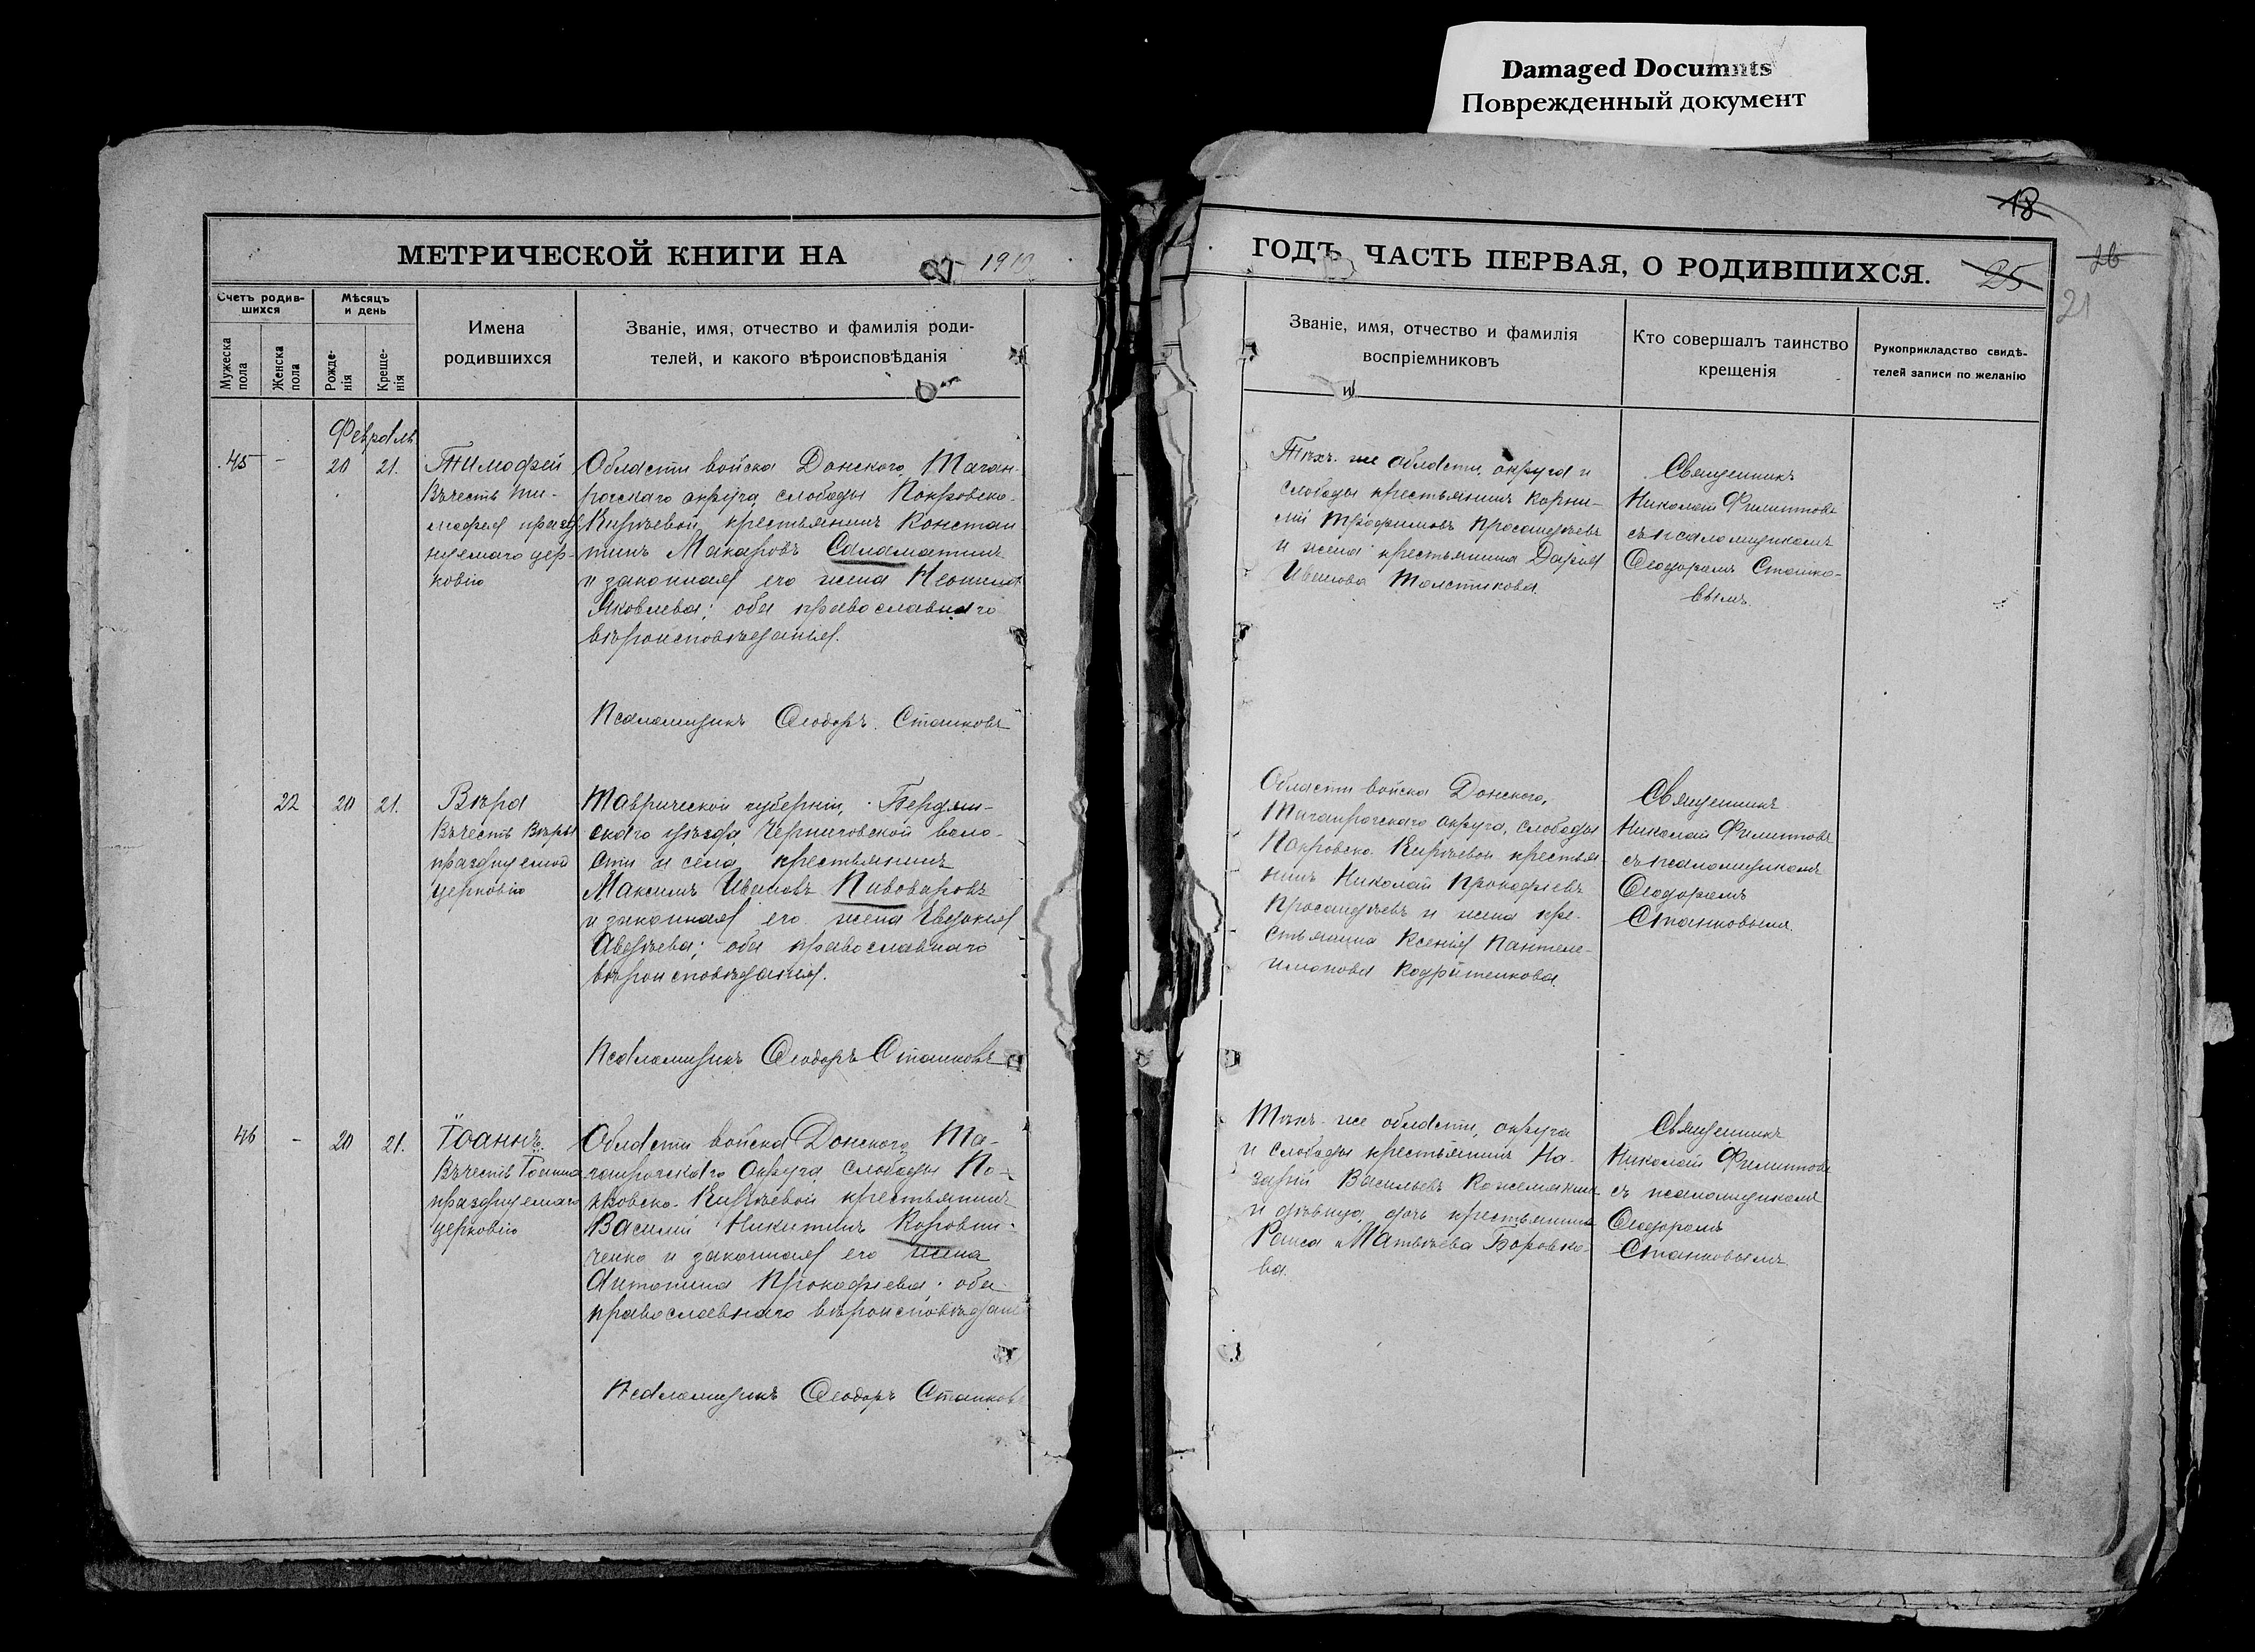 Damaged Documnts
Поврежденный документ
18
МЕТРИЧЕСКОЙ КНИГИ НА 1910
ГОДЪ, ЧАСТЬ ПЕРВАЯ, О РОДИВШИХСЯ.
25
26
21
Счетъ родив-
шихся
Мужеска
пола
Женска
пола
Мѣсяцъ
и день
Рожде-
нія
Креще-
нія
Имена
родившихся
Званіе, имя, отчество и фамилія роди-
телей, и какого вѣроисповѣданія
Званіе, имя, отчество и фамилія
воспріемниковъ
Кто совершалъ таинство
крещенія
Рукоприкладство свидѣ-
телей записи по желанію
Февраль
45 - 20 21.
Тимофей
Въ честь Ти-
мофея празд
нуемаго цер-
ковію
Области войска Донского, Таган-
рогскаго округа слободы Покровско-
Кирѣевой, крестьянинъ Констан
тинъ Макаровъ Саламатинъ
и законная его жена Неонила
Яковлева; оба православнаго
вѣроисповѣданія.
Псаломщикъ Ѳеодоръ Станковъ
Тѣхъ же области, округа и
слободы крестьянинъ Корни-
лій Трофимовъ
и жена крестьянина Дарья
Иванова Толстикова.
Священникъ
Николай Филипповъ
съ псаломщикомъ
Ѳеодоромъ Станко-
вымъ.
22 20 21.
Вѣра
Въ честь Вѣры
празднуемой
церковію
Таврической губерніи, Бердян-
скаго уѣзда, Черниговской воло-
сти и села, крестьянинъ
Максимъ Ивановъ Пивоваровъ
и законная его жена Евдокія
Авдѣева; оба православнаго
вѣроисповѣданія.
Псаломщикъ Ѳеодоръ Станковъ
Области войска Донского,
Таганрогскаго округа, слободы
Покровско-Кирѣевой крестья-
нинъ Николай Прокофіевъ
и жена кре-
стьянина Ксенія Пантеле-
имонова
Священникъ
Николай Филипповъ
съ псаломщикомъ
Ѳеодоромъ
Станковымъ.
46 - 20 21.
Іоаннъ
Въ честь Іоанна
празднуемаго
церковію
Области войска Донского, Та-
ганрогскаго округа, слободы По-
кровско-Кирѣевой крестьянинъ
Василій Никитинъ Коровни-
ченко и законная его жена
Антонина Прокофіева; оба
православнаго вѣроисповѣдані
Псаломщикъ Ѳеодоръ Станковъ
Тѣхъ же области, округа
и слободы крестьянинъ На-
зарій Васильевъ Кожемякин
и дѣвица, дочь крестьянина
Раиса Матвѣева Боровко-
ва.
Священникъ
Николай Филипповъ
съ псаломщикомъ
Ѳеодоромъ
Станковымъ.